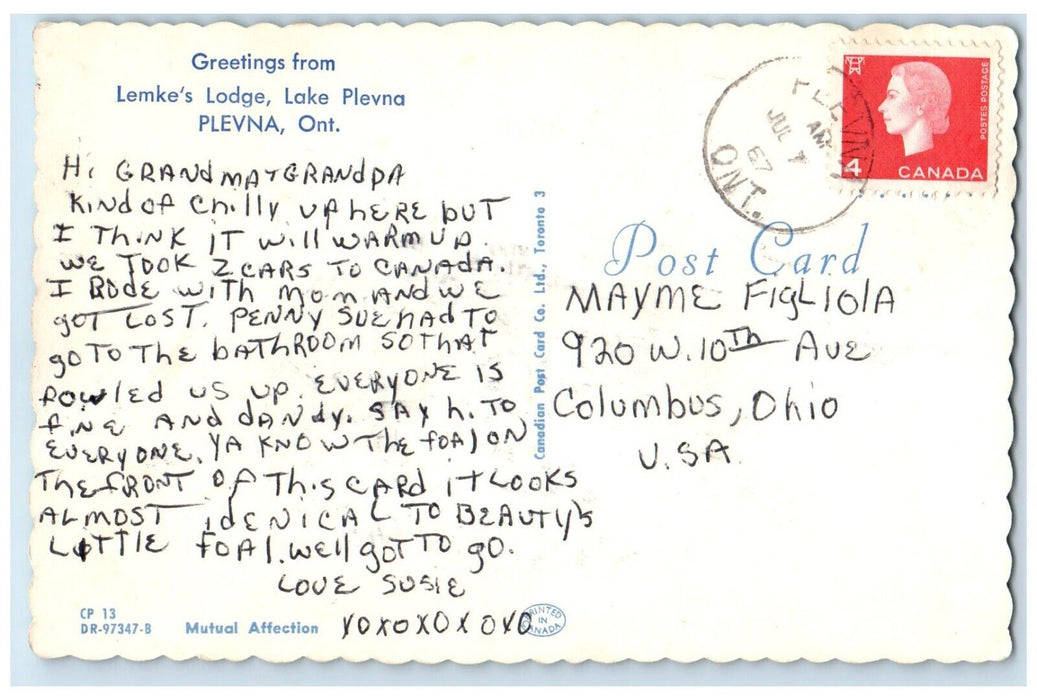 Greetings from
Lemke's Lodge, Lake Plevna
PLEVNA, Ont.
Hi GRANDMA+GRANDPA
KIND OF CHilly UP HERE BUT
I THINK IT Will WARM UP.
WE TOOK 2 CARS TO CANADA.
I RODE WITH MOM AND WE
GOT LOST. PENNY SUE HAD TO
GO TO THE BATHROOM SO THAT
FOWLED US UP. EVERYONE IS
FINE AND DANDY. SAY HI TO
EVERYONE. YA KNOW THE FOAL ON
THE FRONT OF THIS CARD IT LOOKS
ALMOST IDENICAL TO BEAUTY'S
LITTLE FOAL. WEll GOT TO GO.
LOVE SUSIE
XOXOXOXOXO
CP 13
DR-97347-B
Mutual Affection
PRINTED
IN
CANADA
Canadian Post Card Co. Ltd., Toronto 3
Post Card
MAYME FIGLIOLA
920 W. 10Th AVE
Columbus, Ohio
U.S.A.
PLEVNA
AM
JUL 7
67
ONT.
4
CANADA
POSTES POSTAGE